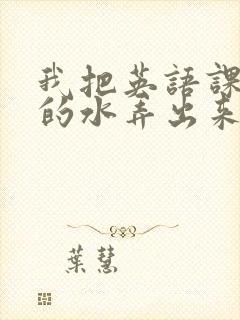 我把英語課
的水弄出来
葉慧